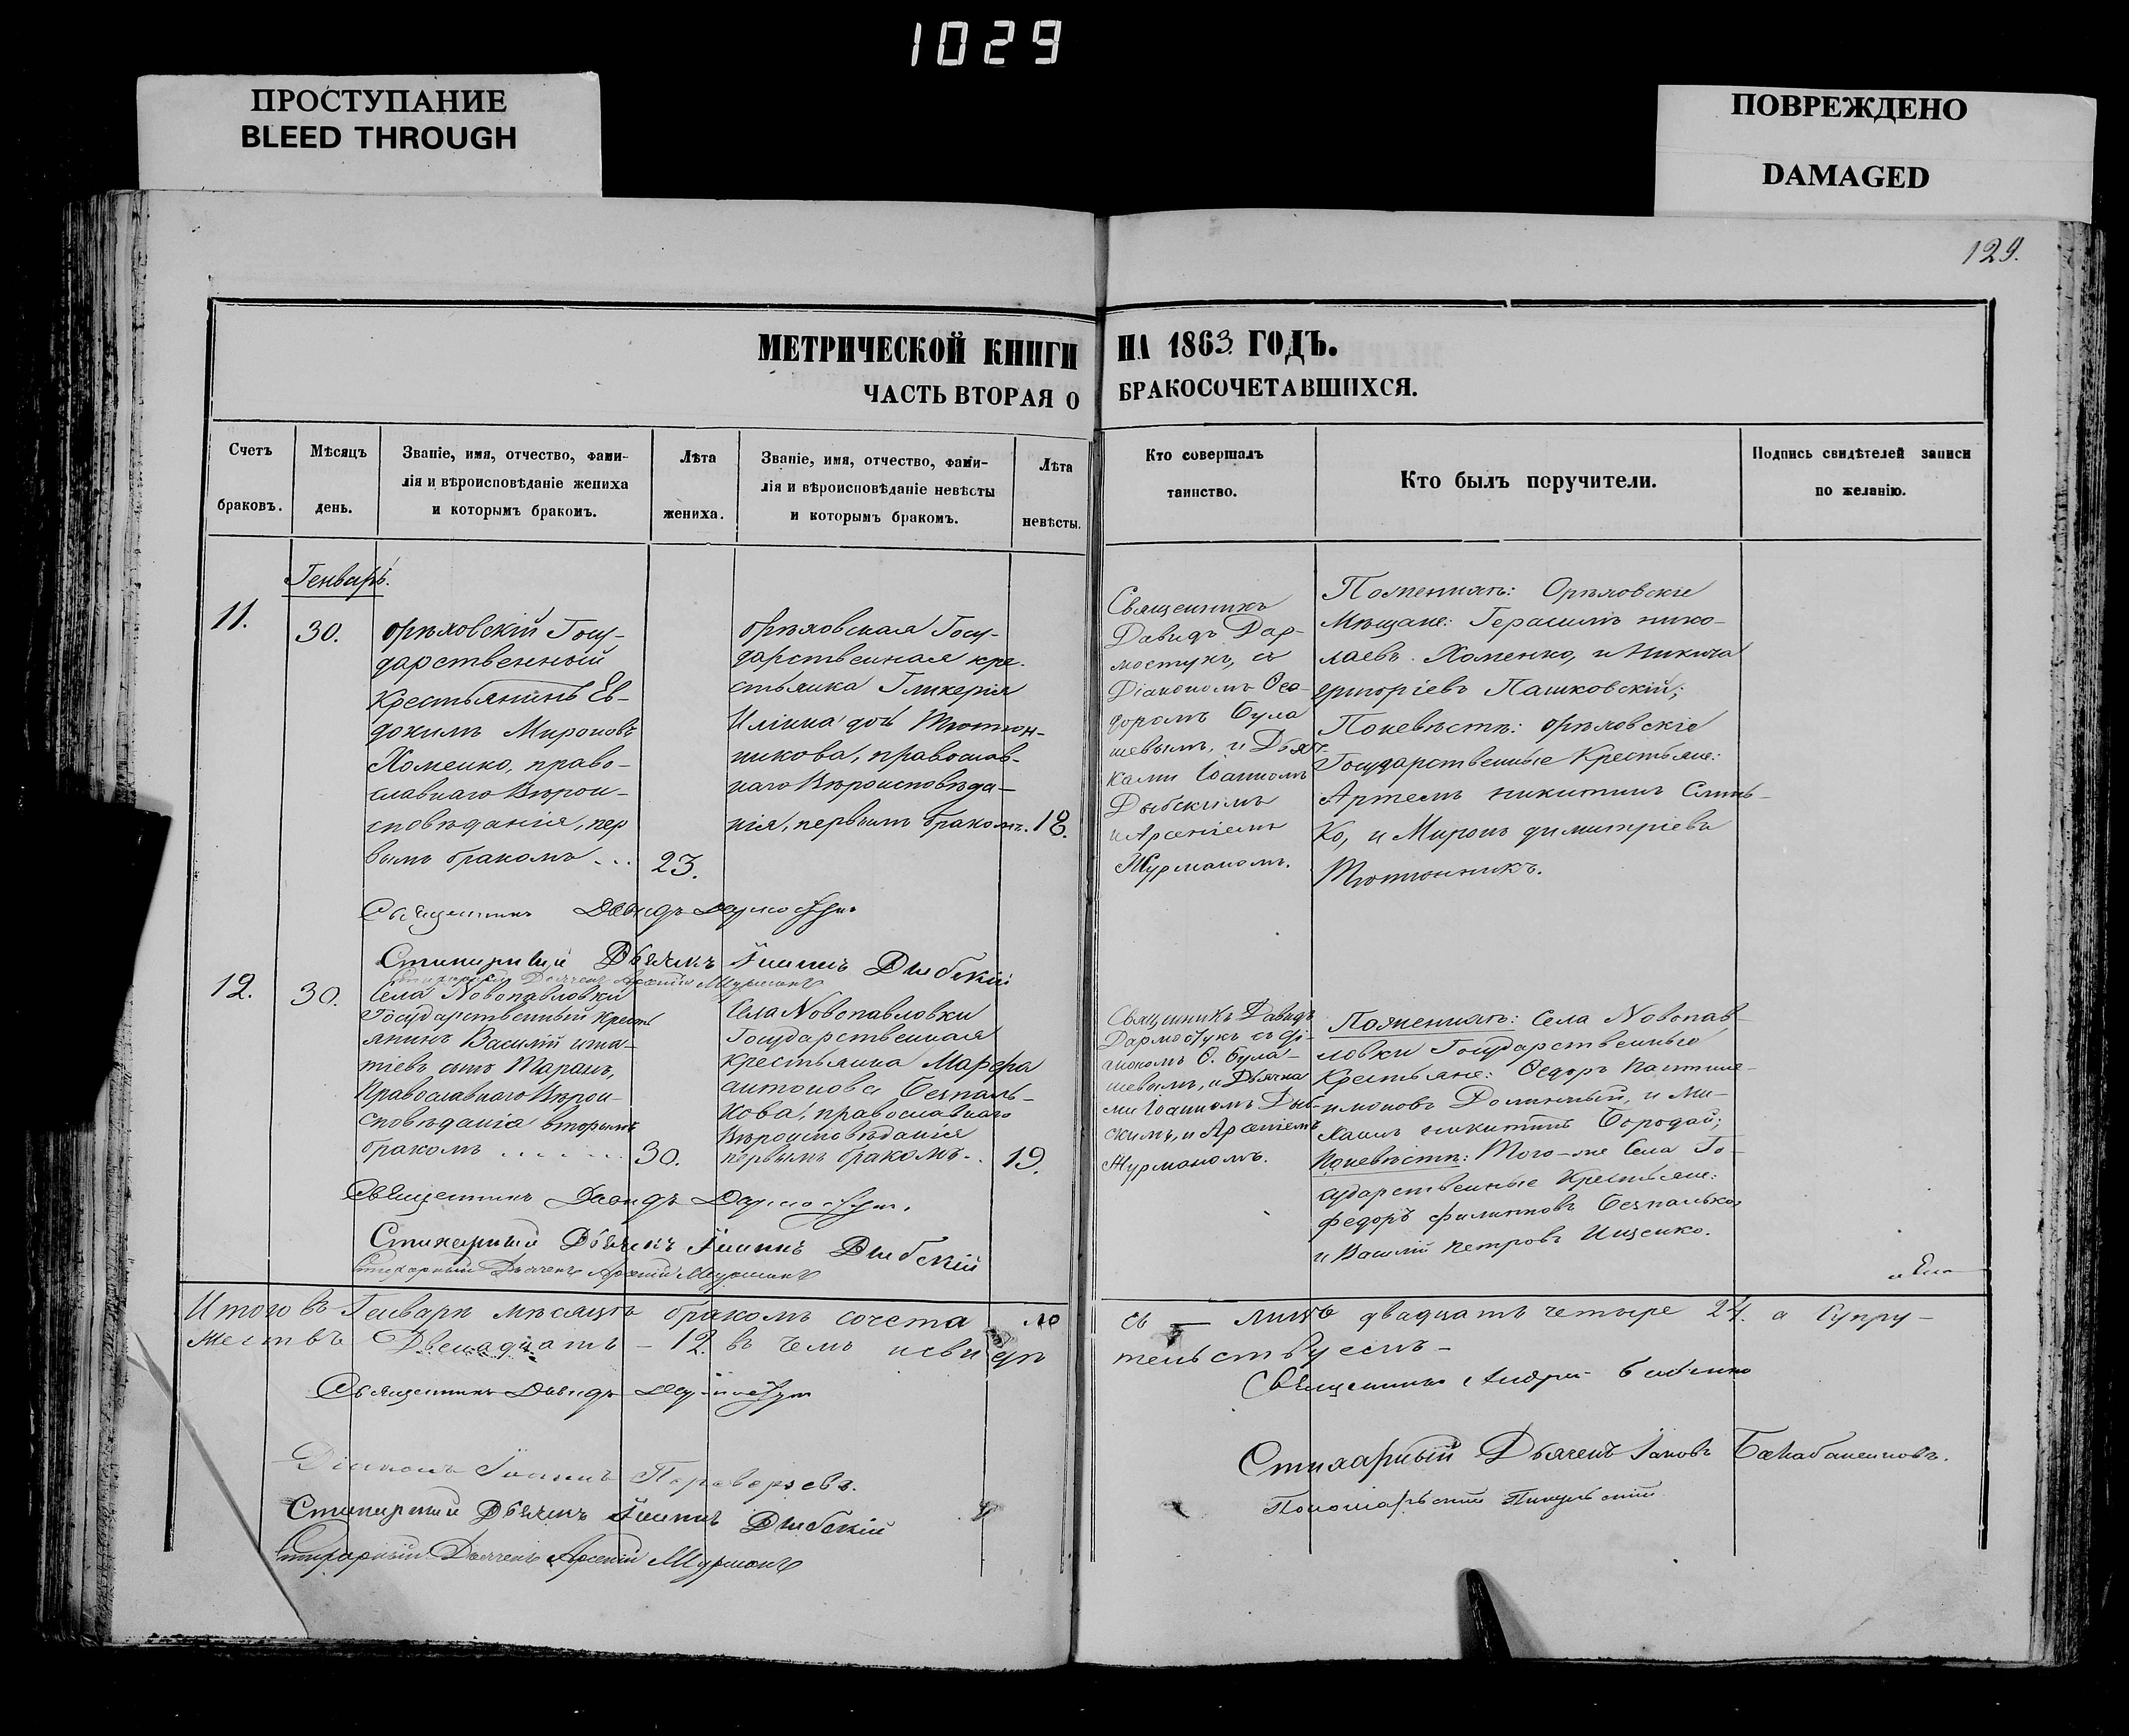 1029
ПРОСТУПАНИЕ
BLEED THROUGH
ПОВРЕЖДЕНО
DAMAGED
129.
МЕТРИЧЕСКОЙ КНИГИ НА 1863 ГОДЪ.
ЧАСТЬ ВТОРАЯ О БРАКОСОЧЕТАВШИХСЯ.
Счетъ
браковъ.
Мѣсяцъ
день.
Званіе, имя, отчество, фами-
лія и вѣроисповѣданіе жениха
и которымъ бракомъ.
Лѣта
жениха.
Званіе, имя, отчество, фами-
лія и вѣроисповѣданіе невѣсты
и которымъ бракомъ.
Лѣта
невѣсты.
Кто совершалъ
таинство.
Кто былъ поручители.
Подпись свидѣтелей записи
по желанію.
Генварь.
11.
30.
Орѣховскій Госу-
дарственный
Крестьянинъ Ев-
докимъ Мироновъ
Хоменко, право-
славнаго Вѣрои-
сповѣданія, пер
вымъ бракомъ ...
23.
Орѣховская Госу-
дарственная кре-
стьянка Гликерія
Иліина дочь Тютюн-
никова, православ-
наго Вѣроисповѣда-
нія, первымъ бракомъ.
18.
Священникъ
Давидъ Дар-
мостукъ, съ
Діакономъ Ѳео-
доромъ Була
шевымъ, и Дьяч-
ками Іоанномъ
Дыбскимъ
и Арсеніемъ
Журманомъ.
Поженихѣ: Орѣховскіе
Мѣщане: Герасимъ нико-
лаевъ Хоменко, и Никита
григоріевъ Пашковскій;
Поневѣстѣ: Орѣховскіе
Государственные Крестьяне:
Артемъ никитинъ Слинь-
ко, и Миронъ димитріевъ
Тютюнникъ.
Священникъ Давидъ
Стихарный Дьячекъ Іоаннъ Дыбскій
Стихарный Дьячекъ Арсеній Журманъ
12.
30.
Села Новопавловки
Государственный кресть
янинъ Василій игна-
тіевъ сынъ Таранъ,
Православнаго Вѣрои-
сповѣданія вторымъ
бракомъ ......
30.
Села Новопавловки
Государственная
крестьянка Марѳра
антонова Безпаль-
кова, православнаго
Вѣроисповѣданія
первымъ бракомъ..
19.
Священникъ Давидъ
Дармостукъ съ Ді-
акономъ Ѳ. Була-
шевымъ, и Дьячка
ми Іоанномъ Дыб-
скимъ, и Арсеніемъ
Журманомъ.
Поженихѣ: Села Новопав-
ловки Государственные
Крестьяне: Ѳедоръ Пантеле-
имоновъ Долинный, и Ми-
хаилъ никитинъ Бородай;
Поневѣстѣ: Того-же Села Го-
сударственные Крестьяне:
федоръ филиповъ Безпалько,
и Василій петровъ Ищенко.
Священникъ Давидъ
Стихарный Дьячекъ Іоаннъ Дыбскій
Стихарный Дьячекъ Арсеній Журманъ
Итого въ Генварѣ мѣсяцѣ бракомъ сочета ло сь — лицъ двадцать четыре 24. а Супру-
жествъ Двенадцать - 12. въ чемъ и сви дѣ тельствуемъ -
Священникъ Давидъ
Священникъ Андрей
Діаконъ Іоаннъ Переверзевъ.
Стихарный Дьячекъ Іоаннъ Дыбскій
Стихарный Дьячекъ Арсеній Журманъ
Стихарный Дьячекъ Іаковъ